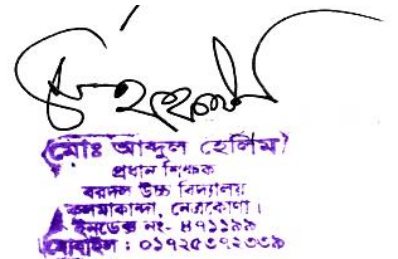 (মোঃ আব্দুল হেলিম)
প্রধান শিক্ষক
বরদল উচ্চ বিদ্যালয়
কলমাকান্দা, নেত্রকোণা।
ইনডেক্স নং- ৪৭১১৯৯
মোবাইল : ০১৭২৫৫৭২৩৩৯